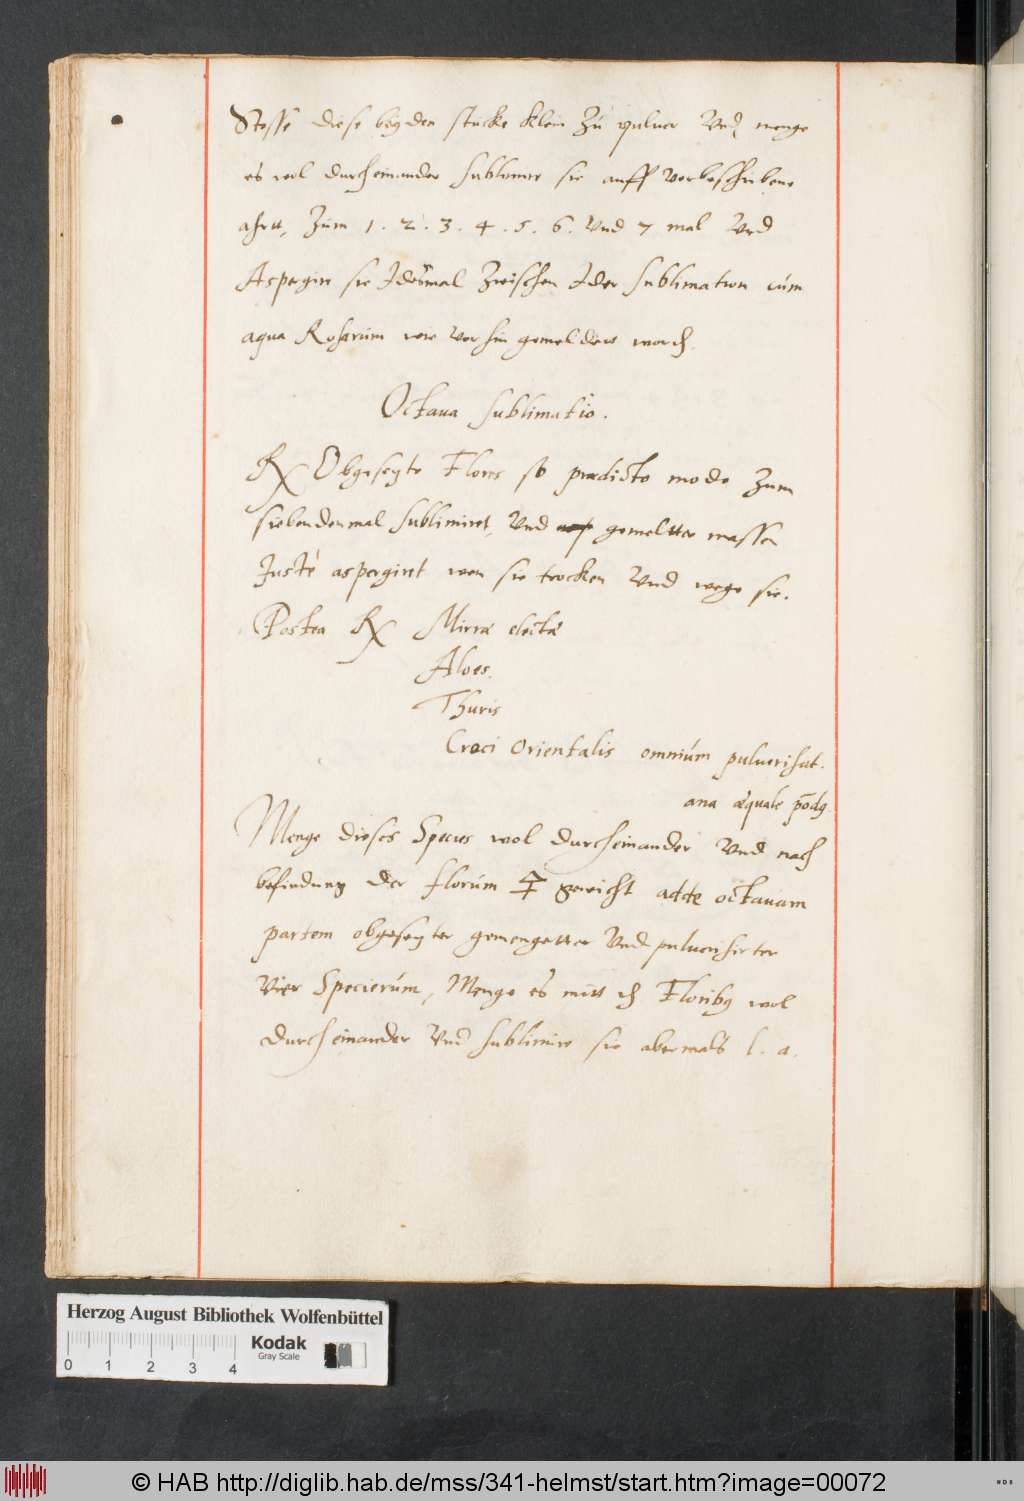 Stosse diese beyden stücke klein zu puluer Vnd menge
es wol durcheinander sublimir sie auff vorbeschribene
ahrtt, Zúm 1. 2. 3. 4. 5. 6. Vnd 7 mal Vnd
Aspergir sie Idesmal Zwischen Ider sublimation cúm
aqua Rosarum wie Vorhin gemeldett
Octaua sublimatio.
Rx Obgeseyte Flores so prædicto modo Zum
siebendenmal sublimiret, Vnd gemeltter massen
Justé aspergiret wen sie trocken Vnd wege sie.
Postea Rx Mirræ electæ
Aloes.
Thuris
Croci Orientalis omniúm puluerisat.
ana æquale pōdg.
Menge dieses Species wol durcheinander Vnd nach
befindung der florúm 🜍 gewicht adde octauam
partem obgeseyter gemengetter Vnd puluerisirter
Vier Specierúm, Menge es mitt Floribg wol
durcheinander Vnd sublimire sie abermals l. a.
Herzog August Bibliothek Wolfenbüttel
Kodak
Gray Scale
0 1 2 3 4
© HAB http://diglib.hab.de/mss/341-helmst/start.htm?image=00072